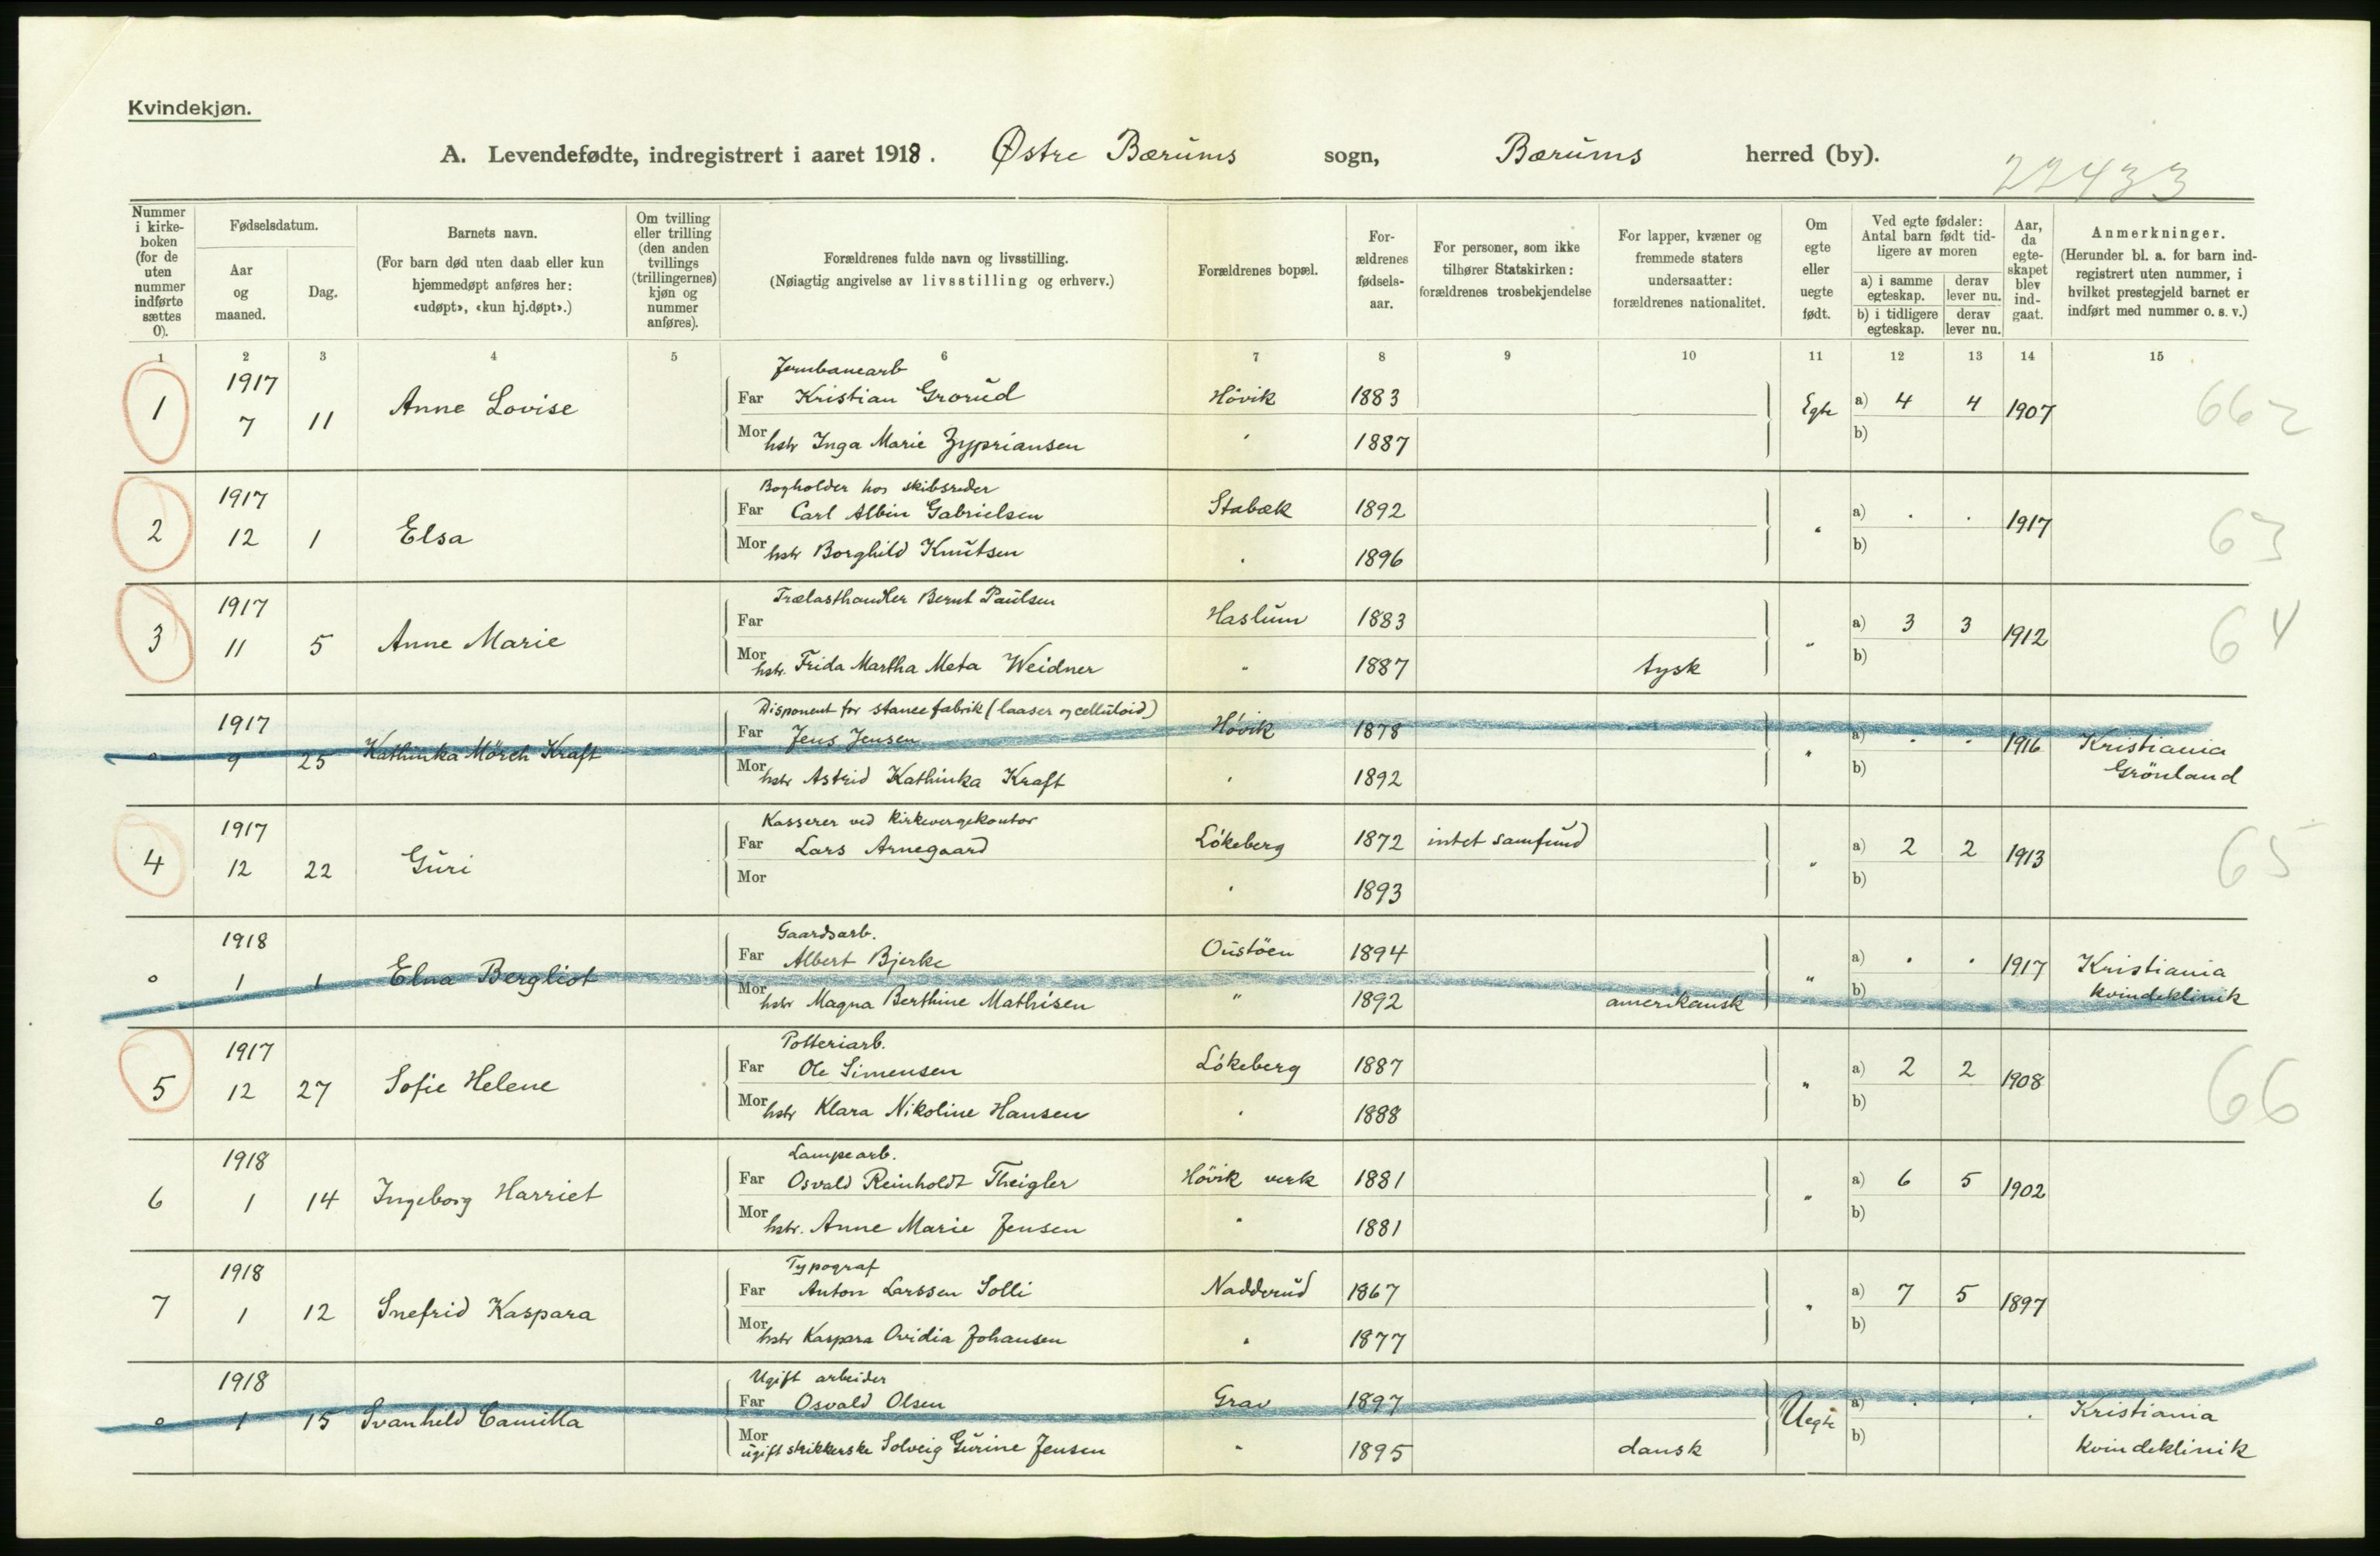 Kvindekjøn.
A. Levendefødte, indregistrert i aaret 1918. Østre Bærums sogn, Bærums herred (by).
22433
Nummer i kirkeboken (for de uten nummer indførte sættes 0).
Fødselsdatum.
Aar og maaned.
Dag.
Barnets navn.
(For barn død uten daab eller kun hjemmedøpt anføres her: «udøpt», «kun hj.døpt».)
Om tvilling eller trilling (den anden tvillings (trillingernes) kjøn og nummer anføres).
Forældrenes fulde navn og livsstilling.
(Nøiagtig angivelse av livsstilling og erhverv.)
Forældrenes bopæl.
Forældrenes fødselsaar.
For personer, som ikke tilhører Statskirken: forældrenes trosbekjendelse
For lapper, kvæner og fremmede staters undersaatter: forældrenes nationalitet.
Om egte eller uegte født.
Ved egte fødsler: Antal barn født tidligere av moren
a) i samme egteskap. derav lever nu.
b) i tidligere egteskap. derav lever nu.
Aar, da egteskapet blev indgaat.
Anmerkninger.
(Herunder bl. a. for barn indregistrert uten nummer, i hvilket prestegjeld barnet er indført med nummer o. s. v.)
1 2 3 4 5 6 7 8 9 10 11 12 13 14 15
Jernbanearb
1 1917 7 11 Anne Lovise Far Kristian Grorud Hövik 1883 Egte a) 4 4 1907 662
Mor hstr Inga Marie Zypriansen " 1887 b)
Bogholder hos skibsreder
2 1917 12 1 Elsa Far Carl Albin Gabrielsen Stabæk 1892 " a) . . 1917 63
Mor hstr Borghild Knutsen " 1896 b)
Trælasthandler Bernt Paulsen
3 1917 11 5 Anne Marie Far Haslum 1883 " a) 3 3 1912 64
Mor hstr. Frida Martha Meta Weidner " 1887 tysk b)
Disponent for stansefabrik (laaser og celluloid)
0 1917 9 25 Kathinka Mörch Kraft Far Jens Jensen Hövik 1878 " a) . . 1916 Kristiania
Mor hstr Astrid Kathinka Kraft " 1892 b) Grönland
Kasserer ved kirkevergekontor
4 1917 12 22 Guri Far Lars Arnegaard Lökeberg 1872 intet samfund " a) 2 2 1913 65
Mor " 1893 b)
Gaardsarb.
0 1918 1 1 Elna Bergliot Far Albert Bjerke Oustöen 1894 " a) . . 1917 Kristiania
Mor hstr Magna Berthine Mathisen " 1892 amerikansk b) kvindeklinik
Potteriarb.
5 1917 12 27 Sofie Helene Far Ole Simensen Lökeberg 1887 " a) 2 2 1908 66
Mor hstr Klara Nikoline Hansen " 1888 b)
Lampearb.
6 1918 1 14 Ingeborg Harriet Far Osvald Reinholdt Theigler Hövik verk 1881 " a) 6 5 1902
Mor hstr. Anne Marie Jensen " 1881 b)
Typograf
7 1918 1 12 Snefrid Kaspara Far Anton Larssen Solli Nadderud 1867 " a) 7 5 1897
Mor hstr Kaspara Ovidia Johansen " 1877 b)
Ugift arbeider
0 1918 1 15 Svanhild Camilla Far Osvald Olsen Grav 1897 Uegte a) . . . Kristiania
Mor ugift strikkerske Solveig Gurine Jensen " 1895 dansk b) kvindeklinik